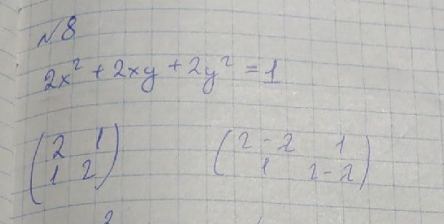 №8
2x² + 2xy + 2y² = 1
(2 1) (2-2 1)
(1 2) (1 2-2)